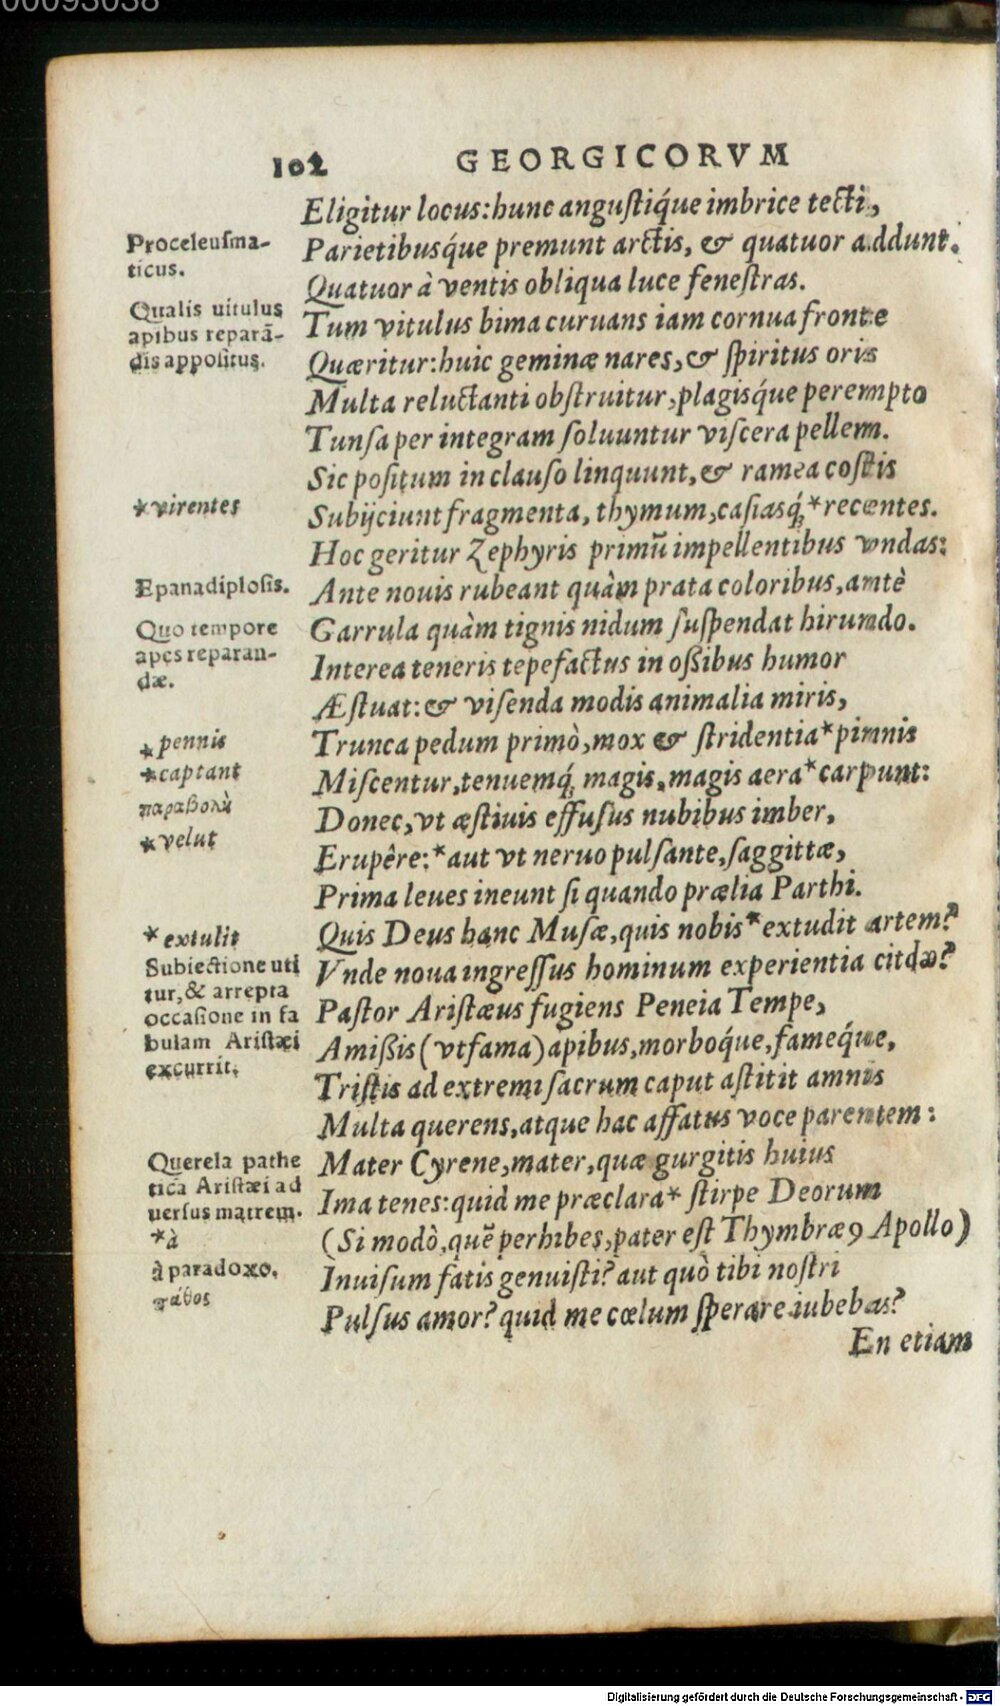 00093038
102 GEORGICORVM
Eligitur locus: hunc angustiq́ue imbrice tecti,
Parietibusq́ue premunt arctis, & quatuor addunt.
Quatuor à ventis obliqua luce fenestras.
Tum vitulus bima curuans iam cornua fronte
Quæritur: huic geminæ nares, & spiritus oris
Multa reluctanti obstruitur, plagisq́ue perempto
Tunsa per integram soluuntur viscera pellem.
Sic positum in clauso linquunt, & ramea costis
Subijciunt fragmenta, thymum, casiasq́; * recentes.
Hoc geritur Zephyris primū impellentibus vndas:
Ante nouis rubeant quàm prata coloribus, antè
Garrula quàm tignis nidum suspendat hirundo.
Interea teneris tepefactus in oßibus humor
Æstuat: & visenda modis animalia miris,
Trunca pedum primò, mox & stridentia * pinnis
Miscentur, tenuemq́; magis, magis aera * carpunt:
Donec, vt æstiuis effusus nubibus imber,
Erupêre: * aut vt neruo pulsante, saggittæ,
Prima leues ineunt si quando prælia Parthi.
Quis Deus hanc Musæ, quis nobis * extudit artem?
Vnde noua ingressus hominum experientia
Pastor Aristæus fugiens Peneia Tempe,
Amißis (vt fama) apibus, morboq́ue, fameq́ue,
Tristis ad extremi sacrum caput astitit amnis
Multa querens, atque hac affatus voce parentem:
Mater Cyrene, mater, quæ gurgitis huius
Ima tenes: quid me præclara * stirpe Deorum
(Si modò, quē perhibes, pater est Thymbræꝰ Apollo)
Inuisum fatis genuisti? aut quò tibi nostri
Pulsus amor? quid me cœlum sperare iubebas?
En etiam
Proceleusma-
ticus.
Qualis uitulus
apibus reparā-
dis appositus.
* virentes
Epanadiplosis.
Quo tempore
apes reparan-
dæ.
* pennis
* captant
παραβολὴ
* velut
* extulit
Subiectione uti
tur, & arrepta
occasione in fa
bulam Aristæi
excurrit.
Querela pathe
tica Aristæi ad
uersus matrem.
* à
à paradoxo.
πάθος
Digitalisierung gefördert durch die Deutsche Forschungsgemeinschaft - DFG